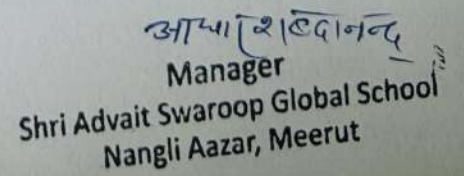 शब्दानन्द
Manager
Shri Advait Swaroop Global School
Nangli Aazar, Meerut